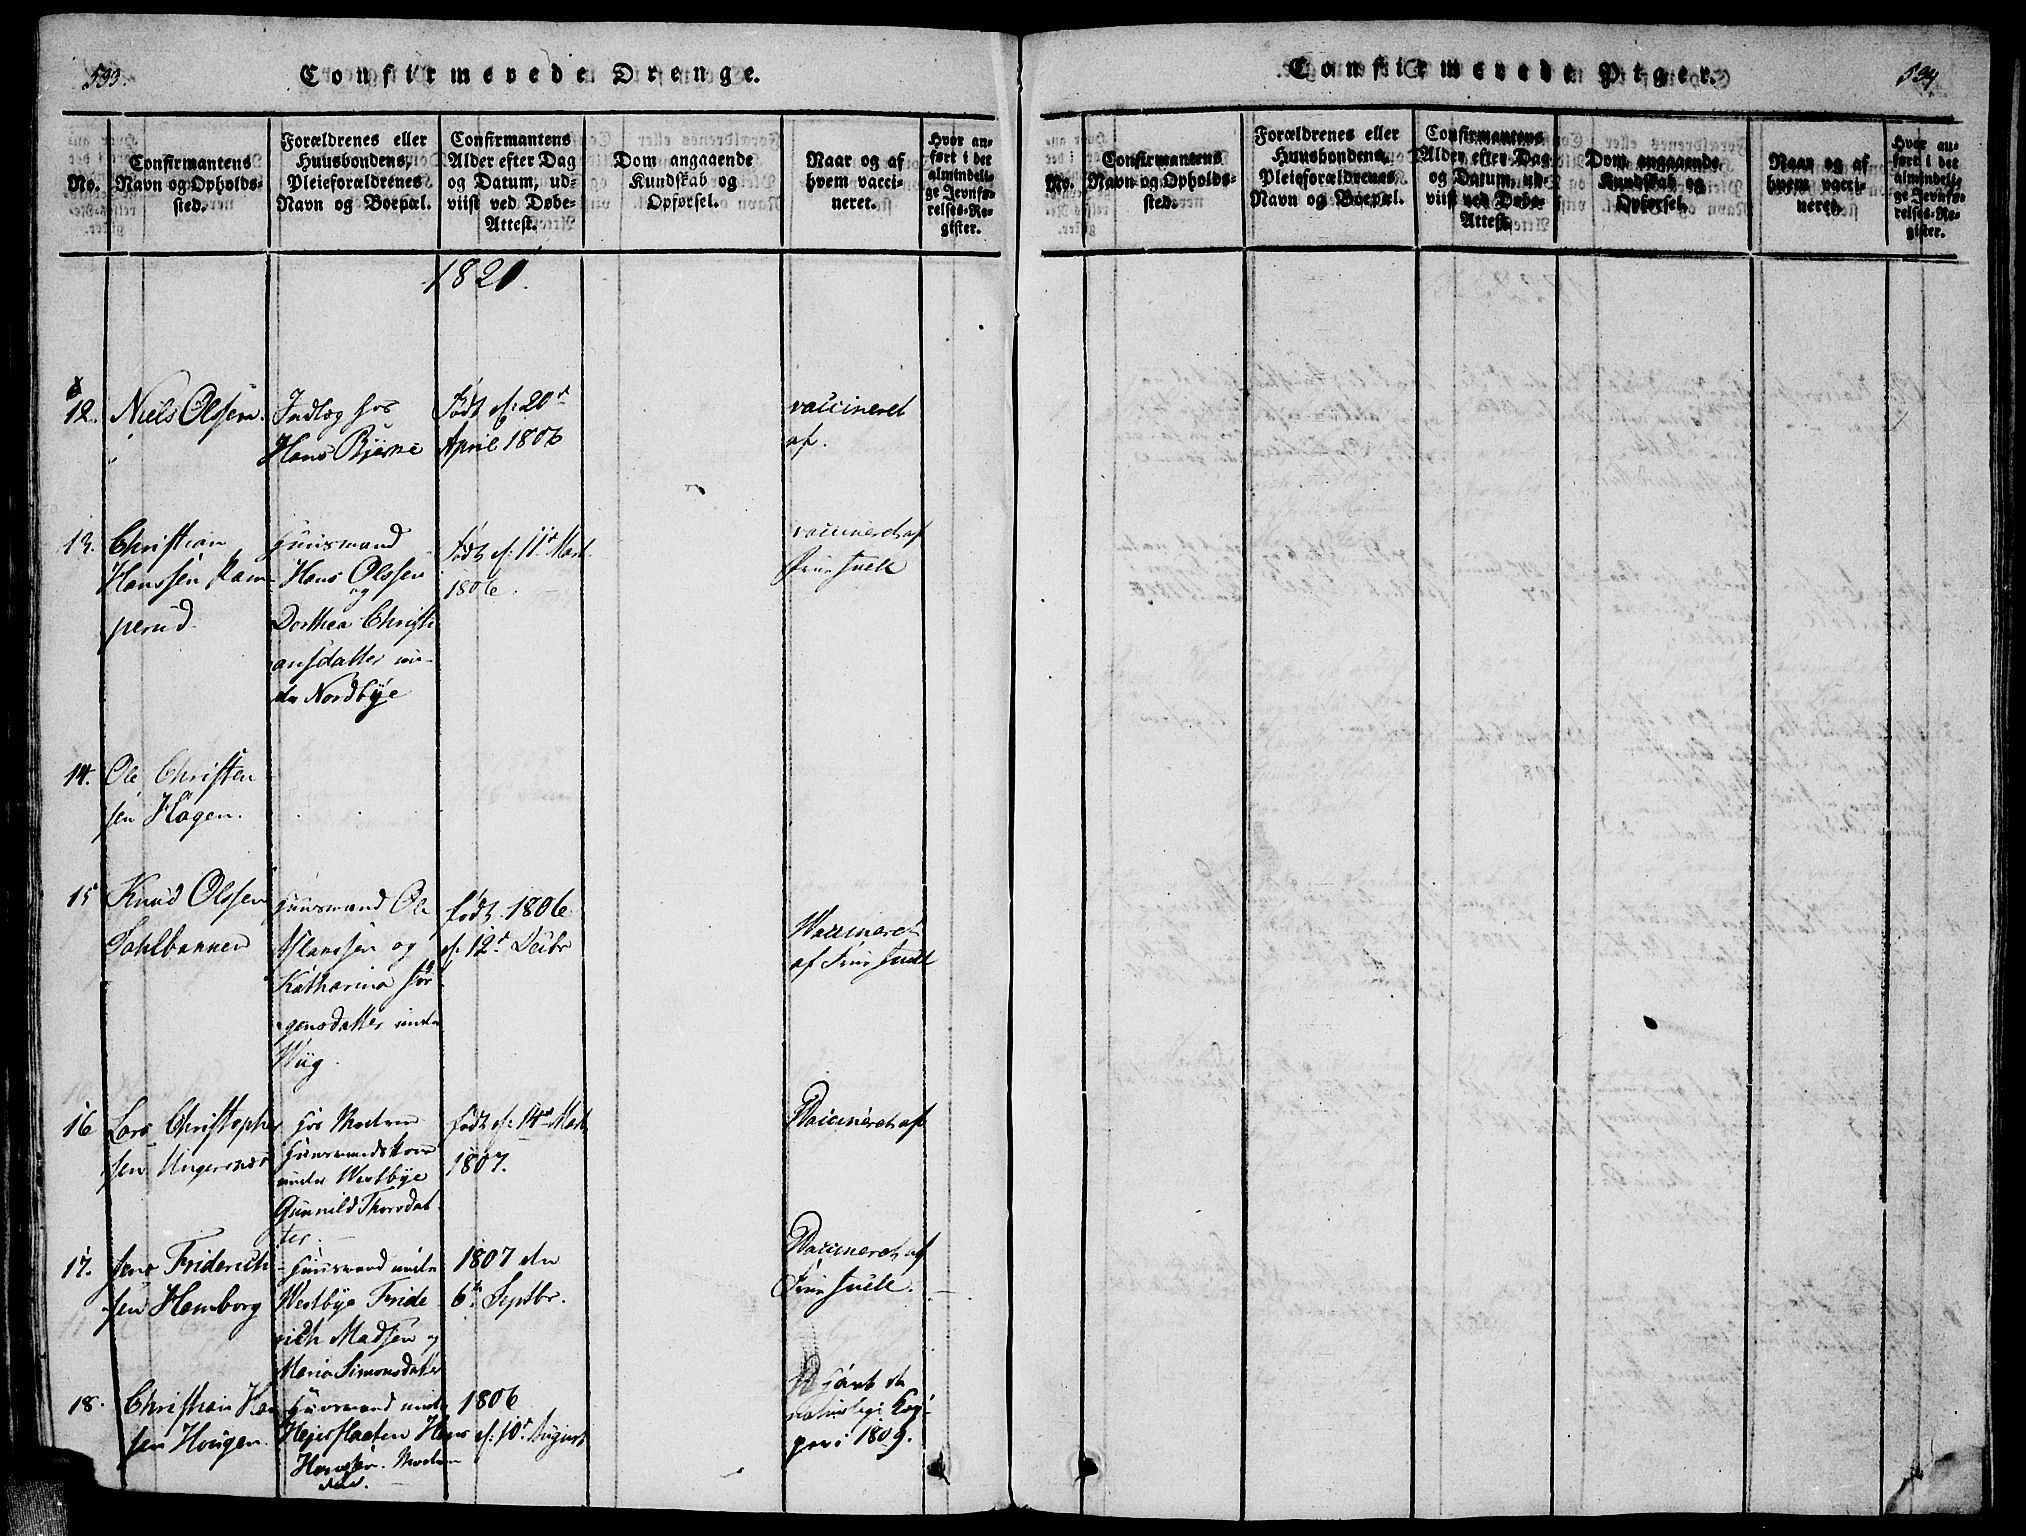 533.
Confirmerede Drenge.
No.
Confirmantens
Navn og Opholds-
sted.
Forældrenes eller
Huusbondens,
Pleieforældrenes
Navn og Boepæl.
Confirmantens
Alder efter Dag
og Datum, ud-
viist ved Døbe-
Attest.
Dom angaaende
Kundskab og
Opførsel.
Naar og af
hvem vacci-
neret.
Hvor an-
ført i det
almindeli-
ge Jevnfø-
relses-Re-
gister.
1821.
12.
Niels Olssen.
Indlæg hos
Hans Bjerke
Født d: 20d
April 1806
vaccineret
af.
13.
Christian
Hanssen Kam-
perud
Huusmand
Hans Olssen
og
Dorthea Christi
ansdatter un-
der Nordbye
Født d: 11d Mart
1806.
vaccineret af
Juell
14.
Ole Christen
sen Hagen.
15
Knud Olssen
Dahlbakken
Huusmand Ole
Aslaksen og
Katharina Jør
gensdatter under
Wiig.
født 1806
d: 12d Decbr
Vaccineret
af Juell
16
Lars Christopher
sen Ungersnes
hos Modren
Huusmandskone
under Westbye
Gunnild Thorsdat
ter.
født d: 14d Mart
1807.
Vaccineret af
17.
Jens Friderich
sen Hamborg
Huusmand under
Westbye Fride
rich Madsen og
Maria Simonsdatter
1807 den
6te Septbr.
Vaccineret af
Juell.
18.
Christian Han
sen Hougen.
Huusmand under
Hans
Hanssen. Modren
død
1806
d: 10d August
de
naturlige Kop
per i 1809.
534
Confirmerede Piger.
No.
Confirmantens
Navn og Opholds-
sted.
Forældrenes eller
Huusbondens,
Pleieforældrenes
Navn og Boepæl.
Confirmantens
Alder efter Dag
og Datum, ud-
viist ved Døbe-
Attest.
Dom angaaende
Kundskab og
Opførsel.
Naar og af
hvem vacci-
neret.
Hvor an-
ført i det
almindeli-
ge Jevnfø-
relses-Re-
gister.